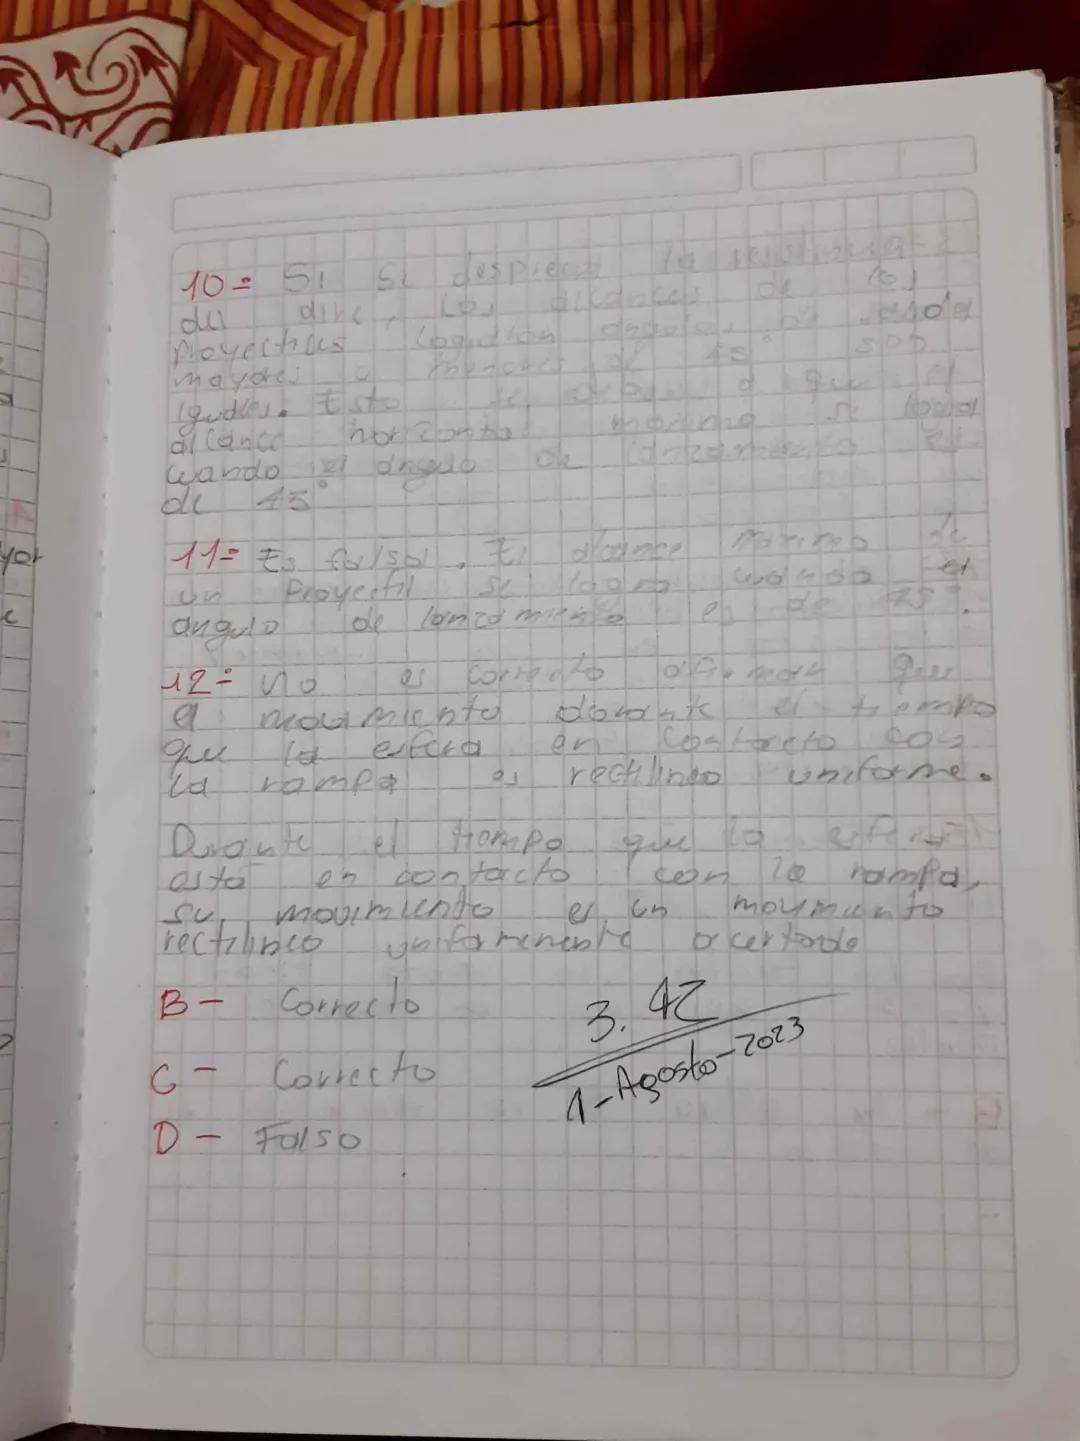 10= Si se desprecia la
del aire, los alcances de los
proyectiles ángulos
mayores o menores de 45° son
iguales. Esto se a que el
alcance horizontal máximo se logra
cuando el ángulo de lanzamiento es
de 45°
11= Es falso. El alcance máximo de
un Proyectil se logra cuando el
angulo de lanzamiento es de 45°.
12= no es correcto afirmar que
el movimiento durante el tiempo
que la esfera en contacto con
la rampa es rectilineo uniforme.
Durante el tiempo que la esfera
esta en contacto con la rampa,
su movimiento es un movimiento
rectilineo
B - Correcto
3.42
C - Correcto
1-Agosto-2023
D - Falso